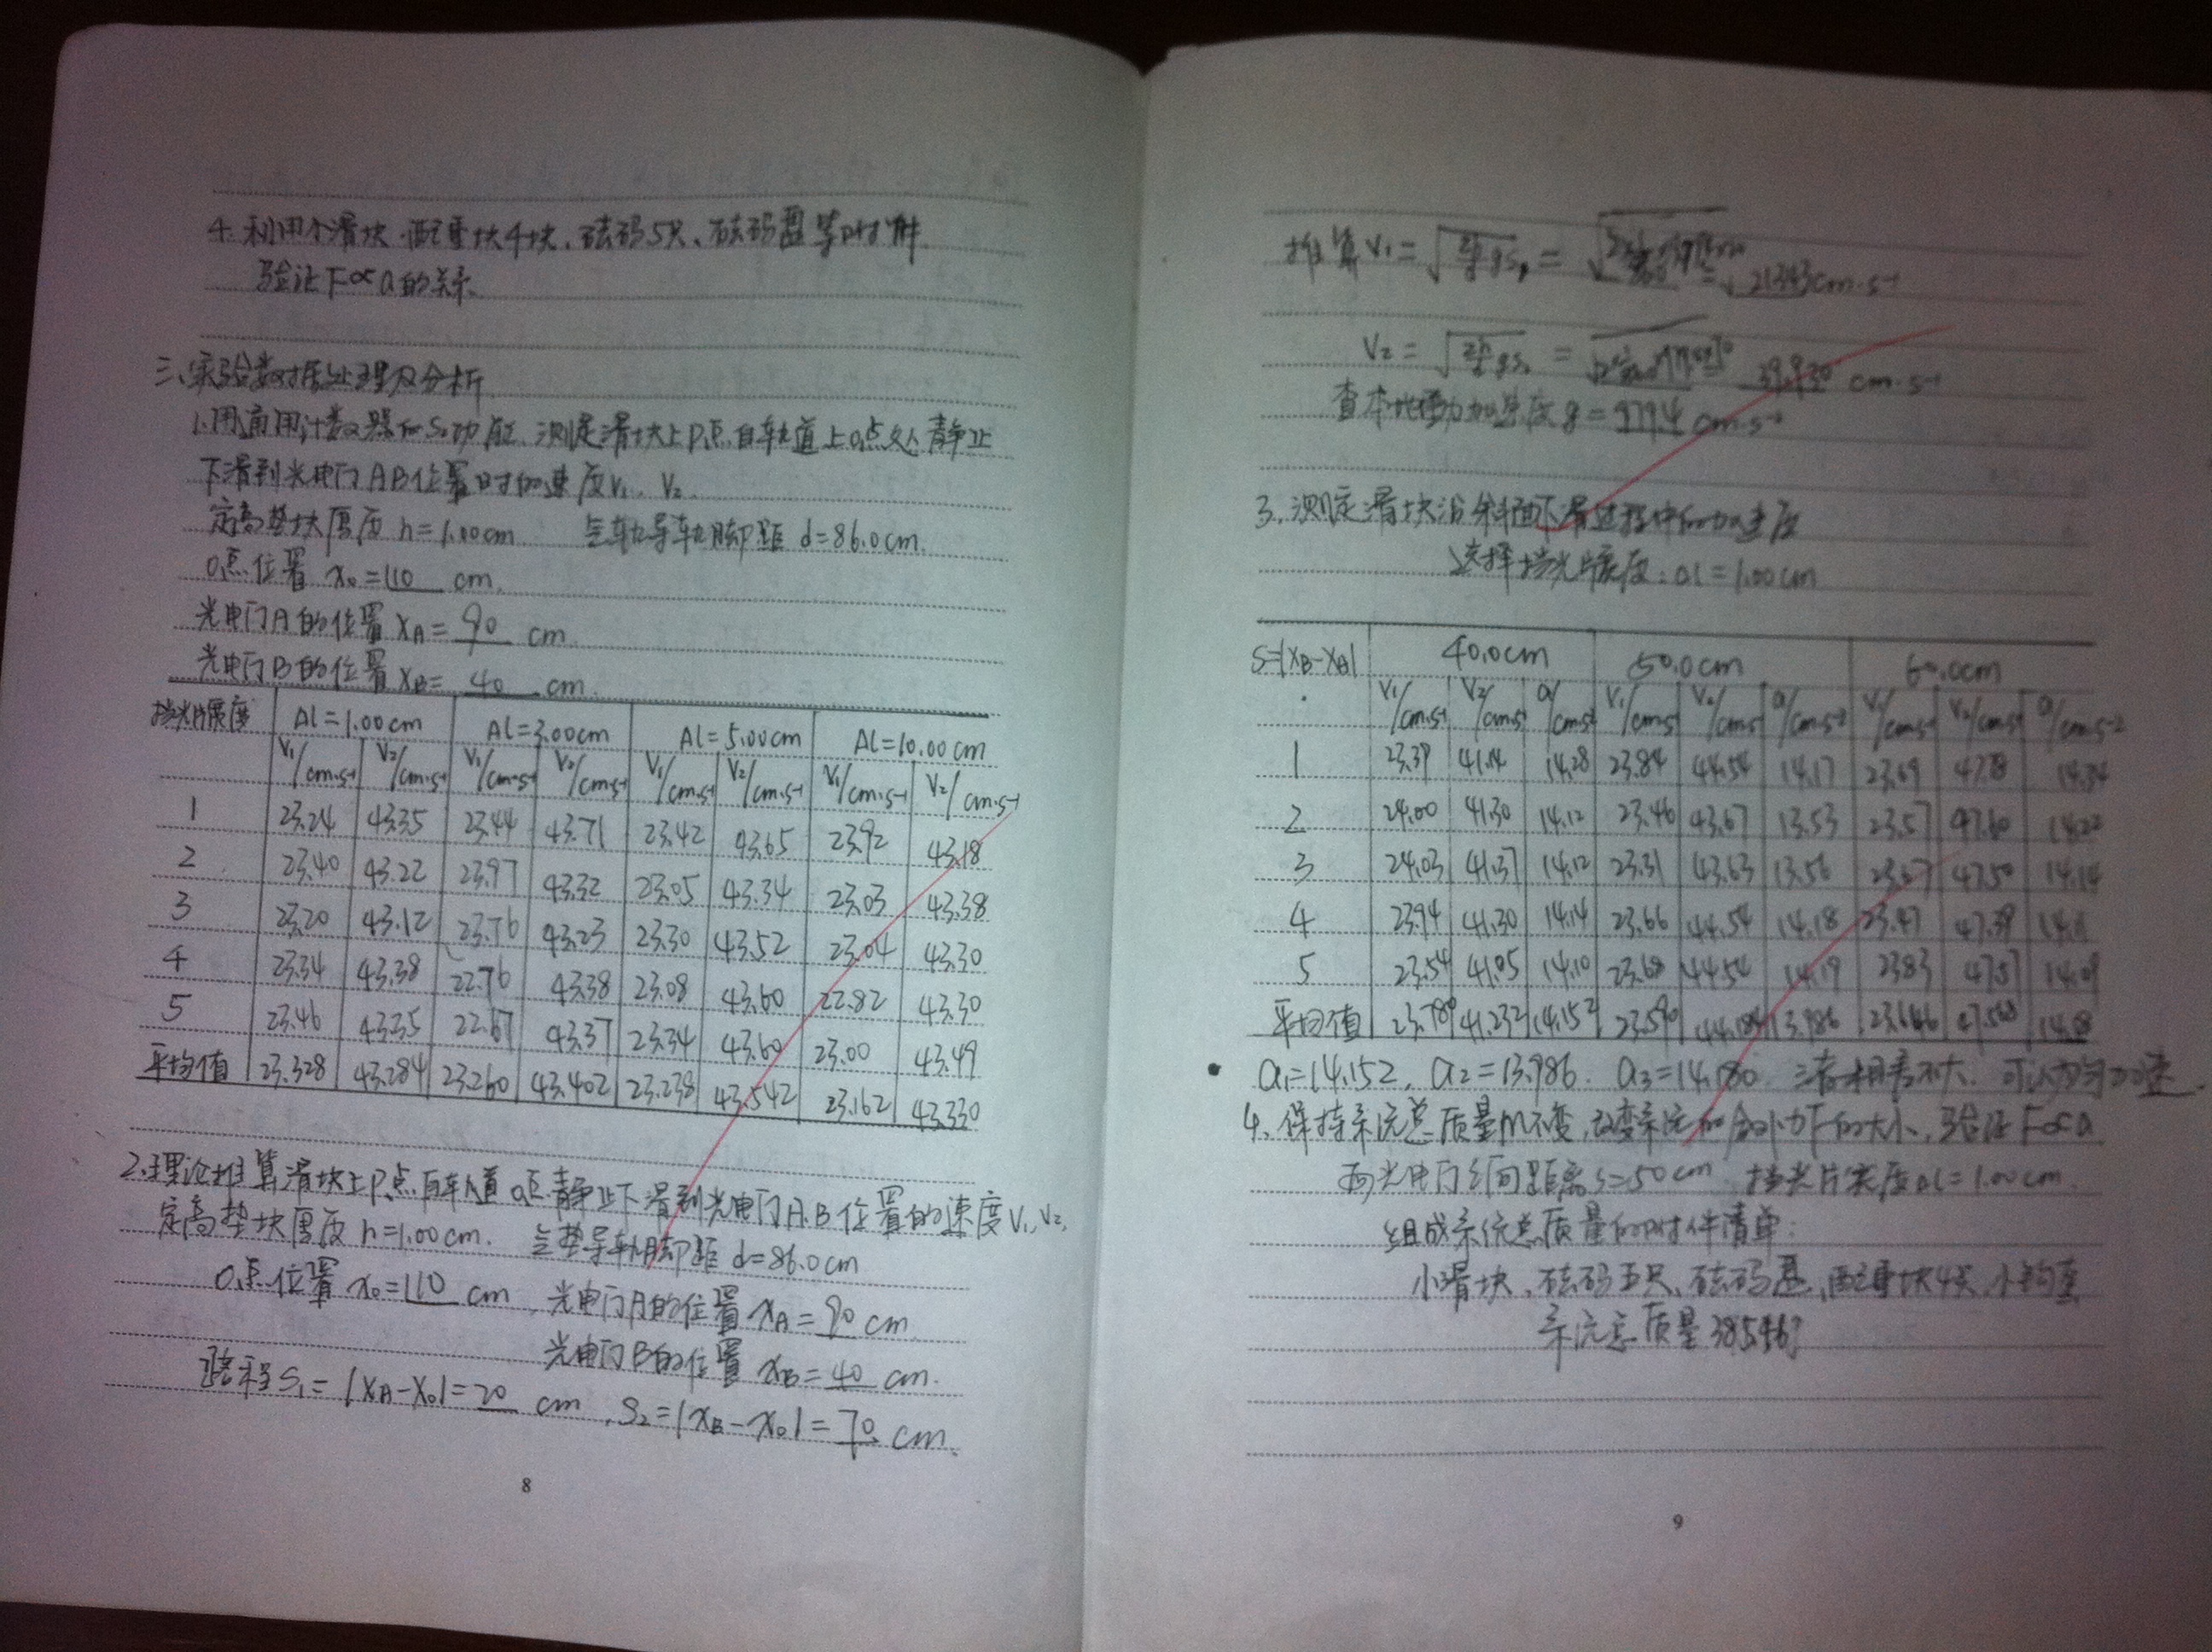 4. 利用个滑块、配重块4块、砝码5只、砝码盘等附件
验证F∝a的关系
三、实验数据处理及分析
1.用通用计数器的S2功能,测定滑块上P点自轨道上O点处静止
下滑到光电门AB位置时的速度V1、V2.
定高垫块厚度 h=1.00cm 气轨导轨脚距 d=86.0cm.
O点位置 x0=110 cm.
光电门A的位置 XA= 90 cm.
光电门B的位置 XB= 40 cm.
挡光片宽度 Δl=1.00cm Δl=3.00cm Δl=5.00cm Δl=10.00cm
V1/cm·s-1 V2/cm·s-1 V1/cm·s-1 V2/cm·s-1 V1/cm·s-1 V2/cm·s-1 V1/cm·s-1 V2/cm·s-1
1 23.24 43.35 23.44 43.71 23.42 43.65 23.92 43.18
2 23.40 43.22 23.97 43.32 23.05 43.34 23.03 43.38
3 23.20 43.12 23.76 43.23 23.30 43.52 23.04 43.30
4 23.34 43.38 22.76 43.38 23.08 43.60 22.82 43.30
5 23.46 43.35 22.67 43.37 23.34 43.60 23.00 43.49
平均值 23.328 43.284 23.260 43.402 23.238 43.542 23.162 43.330
2.理论推算滑块上P点自轨道O点静止下滑到光电门A.B位置的速度V1、V2,
定高垫块厚度 h=1.00cm. 气垫导轨脚距 d=86.0cm
O点位置 x0=110 cm, 光电门A的位置 xA= 90 cm.
光电门B的位置 xB=40 cm.
路程S1=|XA-X0|=20 cm, S2=|xB-x0|=70 cm.
8
推算V1=
V2= cm·s-1
查本地重力加速度 g=979.4 cm·s-2
3. 测定滑块沿斜面下滑过程中的加速度
选择挡光片宽度:Δl=1.00cm
S=|XB-XA| 40.0cm 50.0cm 60.0cm
V1/cm·s-1 V2/cm·s-1 a/cm·s-2 V1/cm·s-1 V2/cm·s-1 a/cm·s-2 V1/cm·s-1 V2/cm·s-1 a/cm·s-2
1 23.39 41.14 14.28 23.84 44.54 14.17 23.69 47.78 14.34
2 24.00 41.30 14.12 23.46 43.67 13.53 23.57 47.60 14.22
3 24.03 41.37 14.12 23.31 43.63 13.56 23.67 47.50 14.14
4 23.94 41.30 14.14 23.66 44.54 14.18 23.47 47.39
5 23.54 41.05 14.10 23.68 44.54 14.19 23.83 47.57 14.09
平均值 23.780 41.232 14.152 23.590 44.184 13.986 23.646 47.568
a1=14.152, a2=13.986. a3=14.180 三者相差不大.
4. 保持系统总质量M不变,改变系统的合外力F的大小,验证F∝a
两光电门间距离S=50cm 挡光片宽度Δl=1.00cm.
组成系统总质量的附件清单:
小滑块、砝码五只、砝码盘、配重块4只、
系统总质量
9